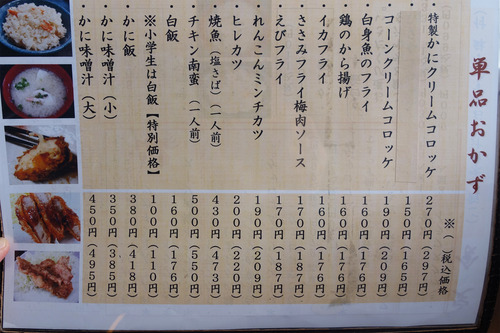 単品おかず
※(税込価格)
・特製かにクリームコロッケ 270円(297円)
・ 150円(165円)
・コーンクリームコロッケ 190円(209円)
・白身魚のフライ 160円(176円)
・鶏のから揚げ 160円(176円)
・イカフライ 160円(176円)
・ささみフライ梅肉ソース 170円(187円)
・えびフライ 170円(187円)
・れんこんミンチカツ 190円(209円)
・ヒレカツ 200円(220円)
・焼魚(塩さば)(一人前) 430円(473円)
・チキン南蛮(一人前) 500円(550円)
・白飯 160円(176円)
※小学生は白飯【特別価格】 100円(110円)
・かに飯 380円(418円)
・かに味噌汁(小) 350円(385円)
・かに味噌汁(大) 450円(495円)